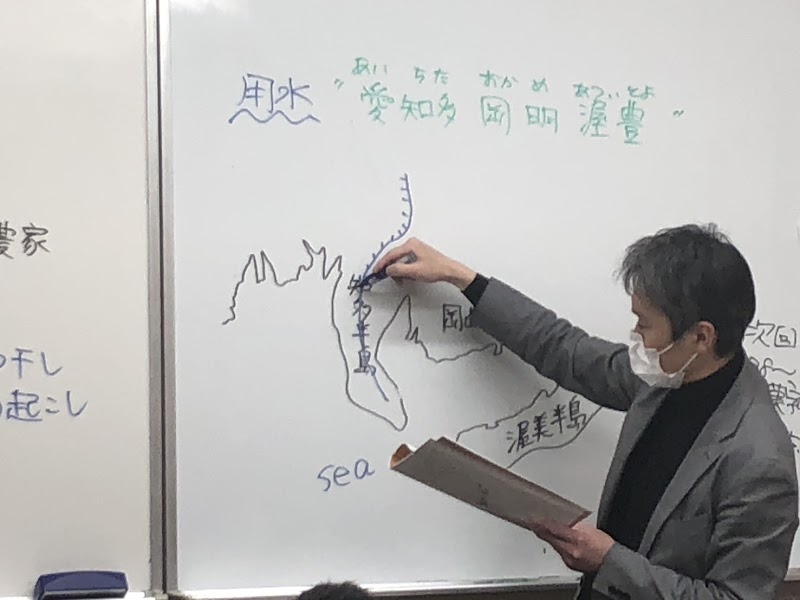 農家
干し
起こし
あい ちた おかめ あついとよ
用水 "愛知多 岡明 渥豊"
知多半島
岡
渥美半島
sea
次回